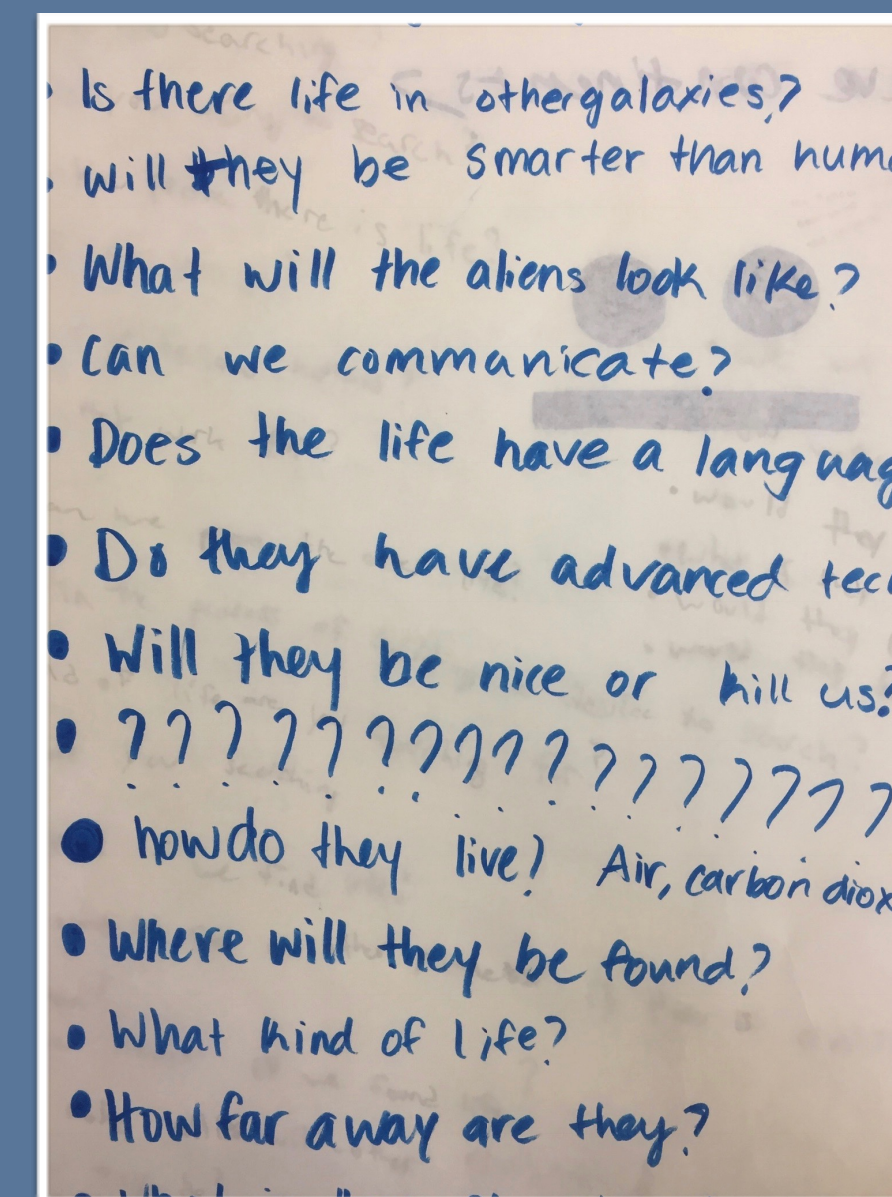 • Is there life in othergalaxies?
• Will they be smarter than hum
• What will the aliens look like?
• Can we communicate?
• Does the life have a languag
• Do they have advanced tec
• Will they be nice or kill us?
• ? ? ? ? ? ? ? ? ? ? ? ? ? ? ? ? ?
• howdo they live? Air, carbon diox
• Where will they be found?
• What kind of life?
• How far away are they?